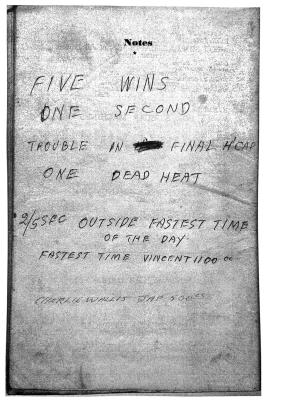 Notes
FIVE WINS
ONE SECOND
TROUBLE IN FINAL H'CAP
ONE DEAD HEAT
2/5 SEC OUTSIDE FASTEST TIME
OF THE DAY
FASTEST TIME VINCENT 1100 cc
CHARLIE WALLIS JAP 500 cs